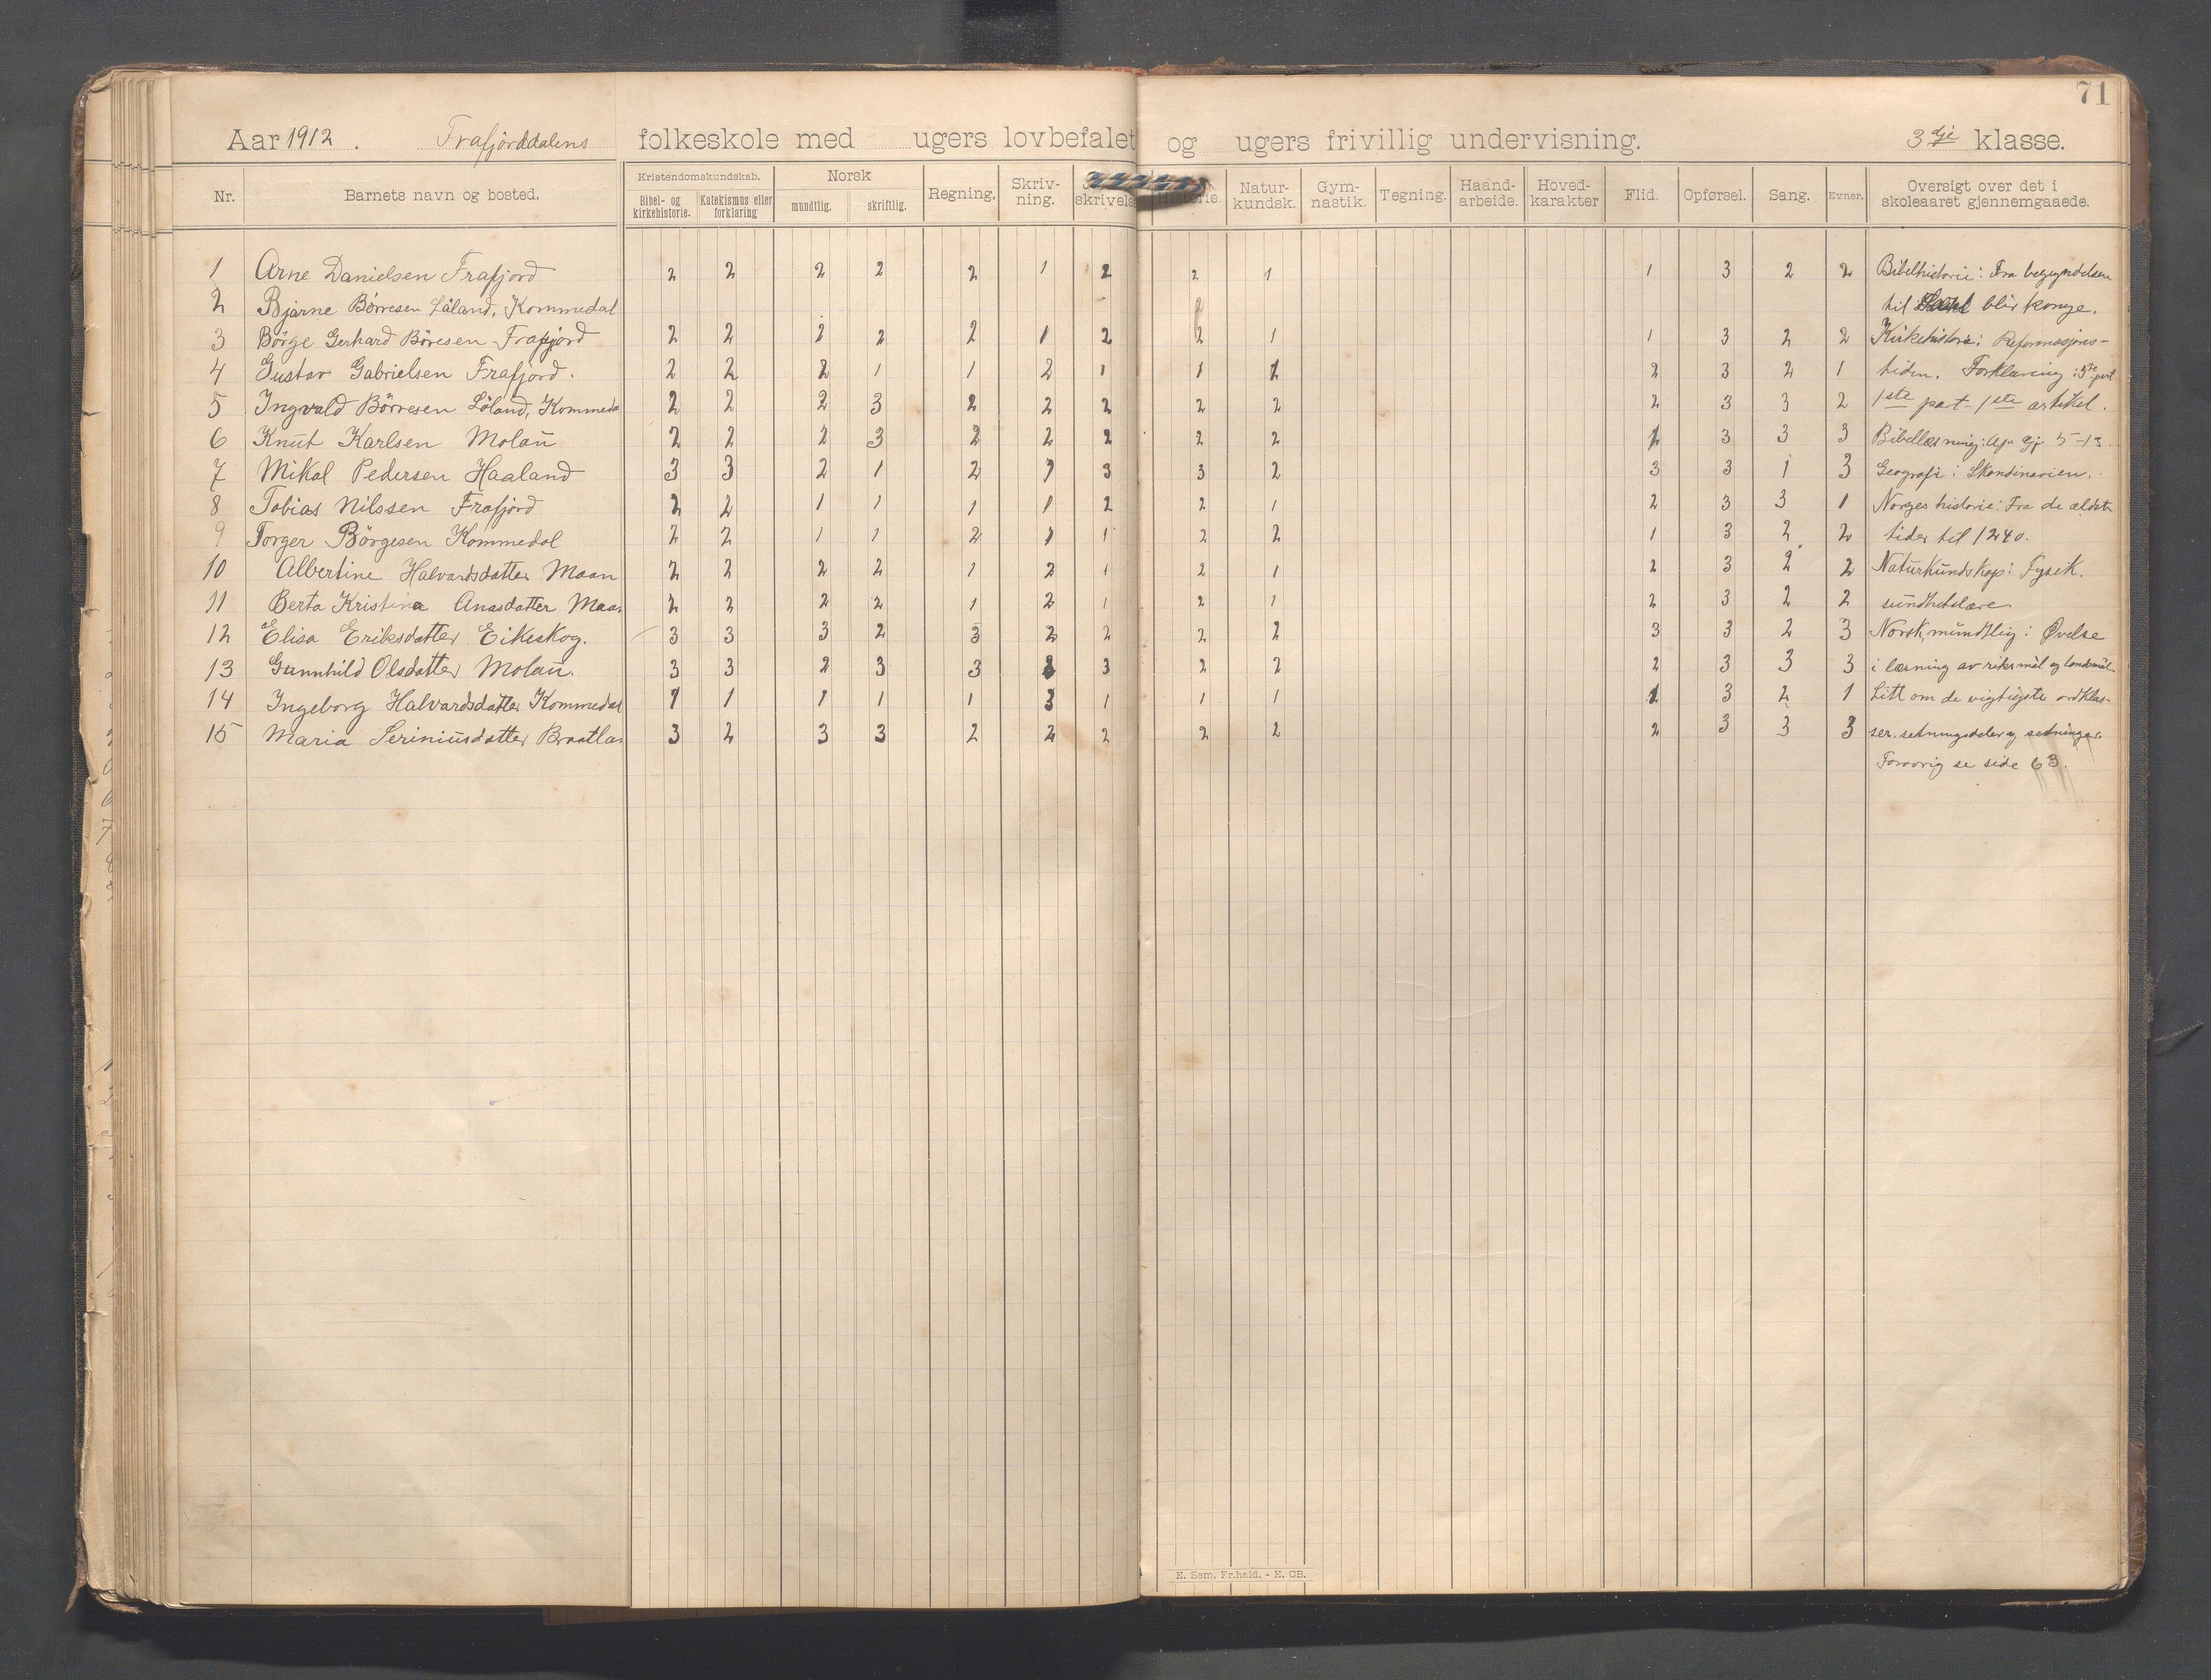 71
Aar 1912. Frafjorddalens folkeskole med ugers lovbefalet og ugers frivillig undervisning. 3dje klasse.
Nr. Barnets navn og bosted. Kristendomskundskab. Bibel- og kirkehistorie. Katekismus eller forklaring Norsk mundtlig. skriftlig. Regning. Skriv-ning. skrivelse Historie. Natur-kundsk. Gym-nastik. Tegning. Haand-arbeide. Hoved-karakter Flid. Opførsel. Sang. Evner. Oversigt over det i skoleaaret gjennemgaaede.
1 Arne Danielsen Frafjord 2 2 2 2 2 1 2 2 1 1 3 2 2 Bibelhistorie: Fra begyndelsen
2 Bjarne Börresen Låland, Kommedal til blir konge.
3 Börge Gerhard Böresen Frafjord 2 2 2 2 2 1 2 2 1 1 3 2 2 Kirkehistorie: Reformasjons-
4 Gustav Gabrielsen Frafjord. 2 2 2 1 1 2 1 1 2 2 3 2 1 tiden. Forklaring: 3de part
5 Ingvald Börresen Löland, Kommeda 2 2 2 3 2 2 2 2 2 2 3 3 2 1ste part - 1ste artikel.
6 Knut Karlsen Molau 2 2 2 3 2 2 2 2 2 2 3 3 3 Bibellæsning: Ap. Gj. 5-13
7 Mikal Pedersen Haaland 3 3 2 1 2 1 3 3 2 3 3 1 3 Geografi: Skandinavien.
8 Tobias Nilssen Frafjord 2 2 1 1 1 1 2 2 1 2 3 3 1 Norges historie: Fra de ældste
9 Torger Börgesen Kommedal 2 2 1 1 2 1 1 2 2 1 3 2 2 tider til 1240.
10 Albertine Halvardsdatter Maan 2 2 2 2 1 2 1 2 1 2 3 2 2 Naturkundskap: Fysik.
11 Berta Kristina Anasdatter Maan 2 2 2 2 1 2 1 2 1 2 3 2 2 sundhetslære.
12 Elisa Eriksdatter Eikeskog. 3 3 3 2 3 2 2 2 2 3 3 2 3 Norsk, mundtlig: Øvelse
13 Gunnhild Olsdatter Molau. 3 3 2 3 3 2 3 2 2 2 3 3 3 i læsning av riksmål og landsmål
14 Ingeborg Halvardsdatter Kommedal 1 1 1 1 1 3 1 1 1 1 3 2 1 Litt om de vigtigste ordklas-
15 Maria Seriniusdatter Braatlan 3 2 3 3 2 2 2 2 2 2 3 3 3 ser. setningsdeler og setninger.
Forøvrig se side 63.
E. Sem, Fr.hald. - E. CB.